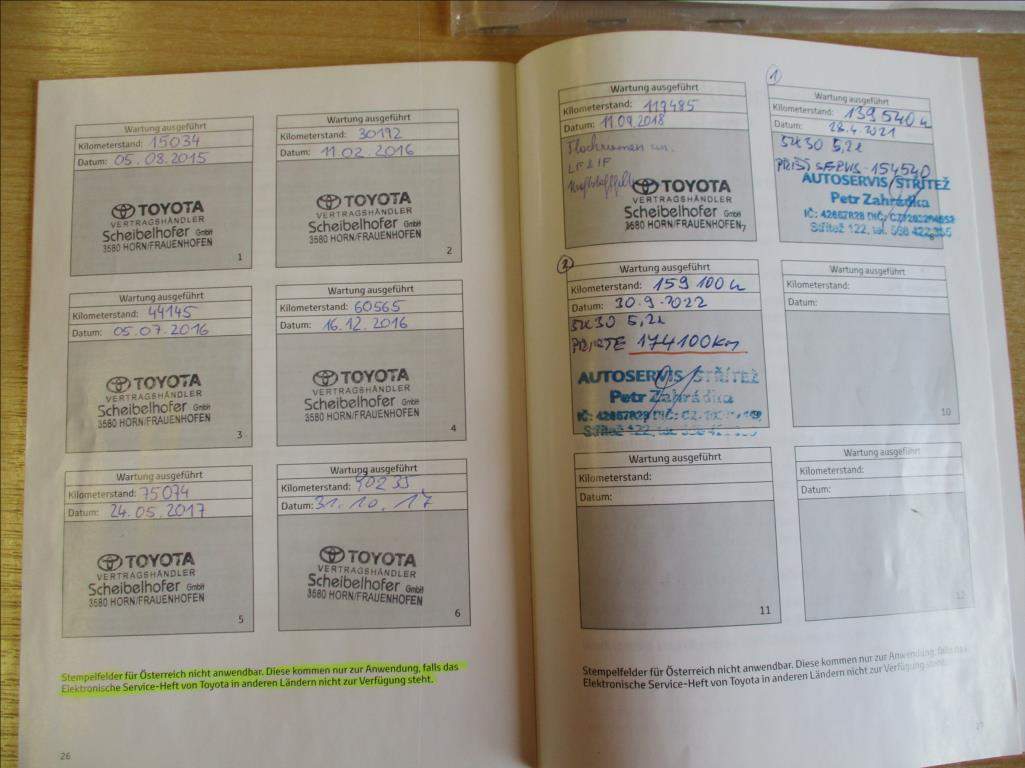 Wartung ausgeführt
Kilometerstand: 15034
Datum: 05.08.2015
TOYOTA
VERTRAGSHÄNDLER
Scheibelhofer GmbH
3580 HORN/FRAUENHOFEN
1
Wartung ausgeführt
Kilometerstand: 30192
Datum: 11.02.2016
TOYOTA
VERTRAGSHÄNDLER
Scheibelhofer GmbH
3580 HORN/FRAUENHOFEN
2
Wartung ausgeführt
Kilometerstand: 44145
Datum: 05.07.2016
TOYOTA
VERTRAGSHÄNDLER
Scheibelhofer GmbH
3580 HORN/FRAUENHOFEN
3
Wartung ausgeführt
Kilometerstand: 60565
Datum: 16.12.2016
TOYOTA
VERTRAGSHÄNDLER
Scheibelhofer GmbH
3580 HORN/FRAUENHOFEN
4
Wartung ausgeführt
Kilometerstand: 75074
Datum: 24.05.2017
TOYOTA
VERTRAGSHÄNDLER
Scheibelhofer GmbH
3580 HORN/FRAUENHOFEN
5
Wartung ausgeführt
Kilometerstand: 90233
Datum: 31.10.17
TOYOTA
VERTRAGSHÄNDLER
Scheibelhofer GmbH
3580 HORN/FRAUENHOFEN
6
Stempelfelder für Österreich nicht anwendbar. Diese kommen nur zur Anwendung, falls das
Elektronische Service-Heft von Toyota in anderen Ländern nicht zur Verfügung steht.
26
Wartung ausgeführt
Kilometerstand: 119485
Datum: 11.09.2018
LF & IF
TOYOTA
VERTRAGSHÄNDLER
Scheibelhofer GmbH
3580 HORN/FRAUENHOFEN
7
1
Wartung ausgeführt
Kilometerstand: 139540
Datum: 28.4 2021
5W30 5,2l
PŘÍŠTÍ SERVIS 154540
AUTOSERVIS STŘÍTEŽ
Petr Zahrádka
IČ: 42667828 DIČ:
Střítež 122, tel.
2
Wartung ausgeführt
Kilometerstand: 159100
Datum: 30.9.2022
5W30 5,2l
174100km
AUTOSERVIS STŘÍTEŽ
Petr Zahrádka
IČ: 42667828 DIČ:
Střítež 122, tel.
Wartung ausgeführt
Kilometerstand:
Datum:
10
Wartung ausgeführt
Kilometerstand:
Datum:
11
Wartung ausgeführt
Kilometerstand:
Datum:
12
Stempelfelder für Österreich nicht anwendbar. Diese kommen nur zur Anwendung, falls das
Elektronische Service-Heft von Toyota in anderen Ländern nicht zur Verfügung steht.